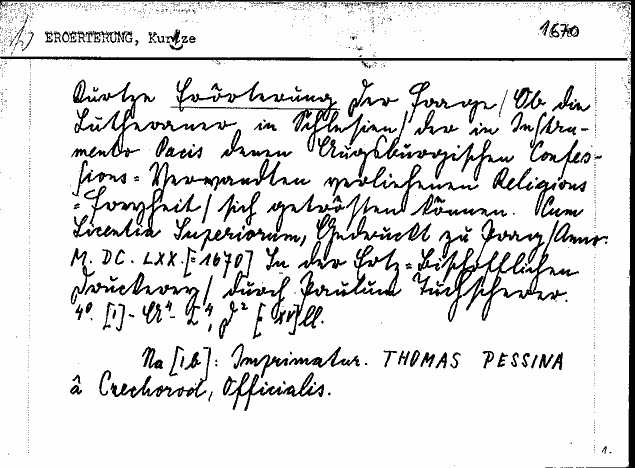 1670
EROERTERUNG, Kurtze
Kurtze Erörterung der Frage / Ob die
Lutheraner in Schlesien / der in Instru-
mento Pacis denen Augsburgischen Confes-
sions=Verwandten verliehenen Religions
=Freyheit / sich getrösten können. Cum
Licentia Superiorum, Gedruckt zu Prag / Anno.
M. DC. LXX. [=1670] In der Ertz=Bischofflichen
Druckerey / durch Paulum Tuchscherer.
4°. [1]- A⁴- ll.
Na [1b]: Imprimatur. THOMAS PESSINA
â Czechorod, Officialis.
1.